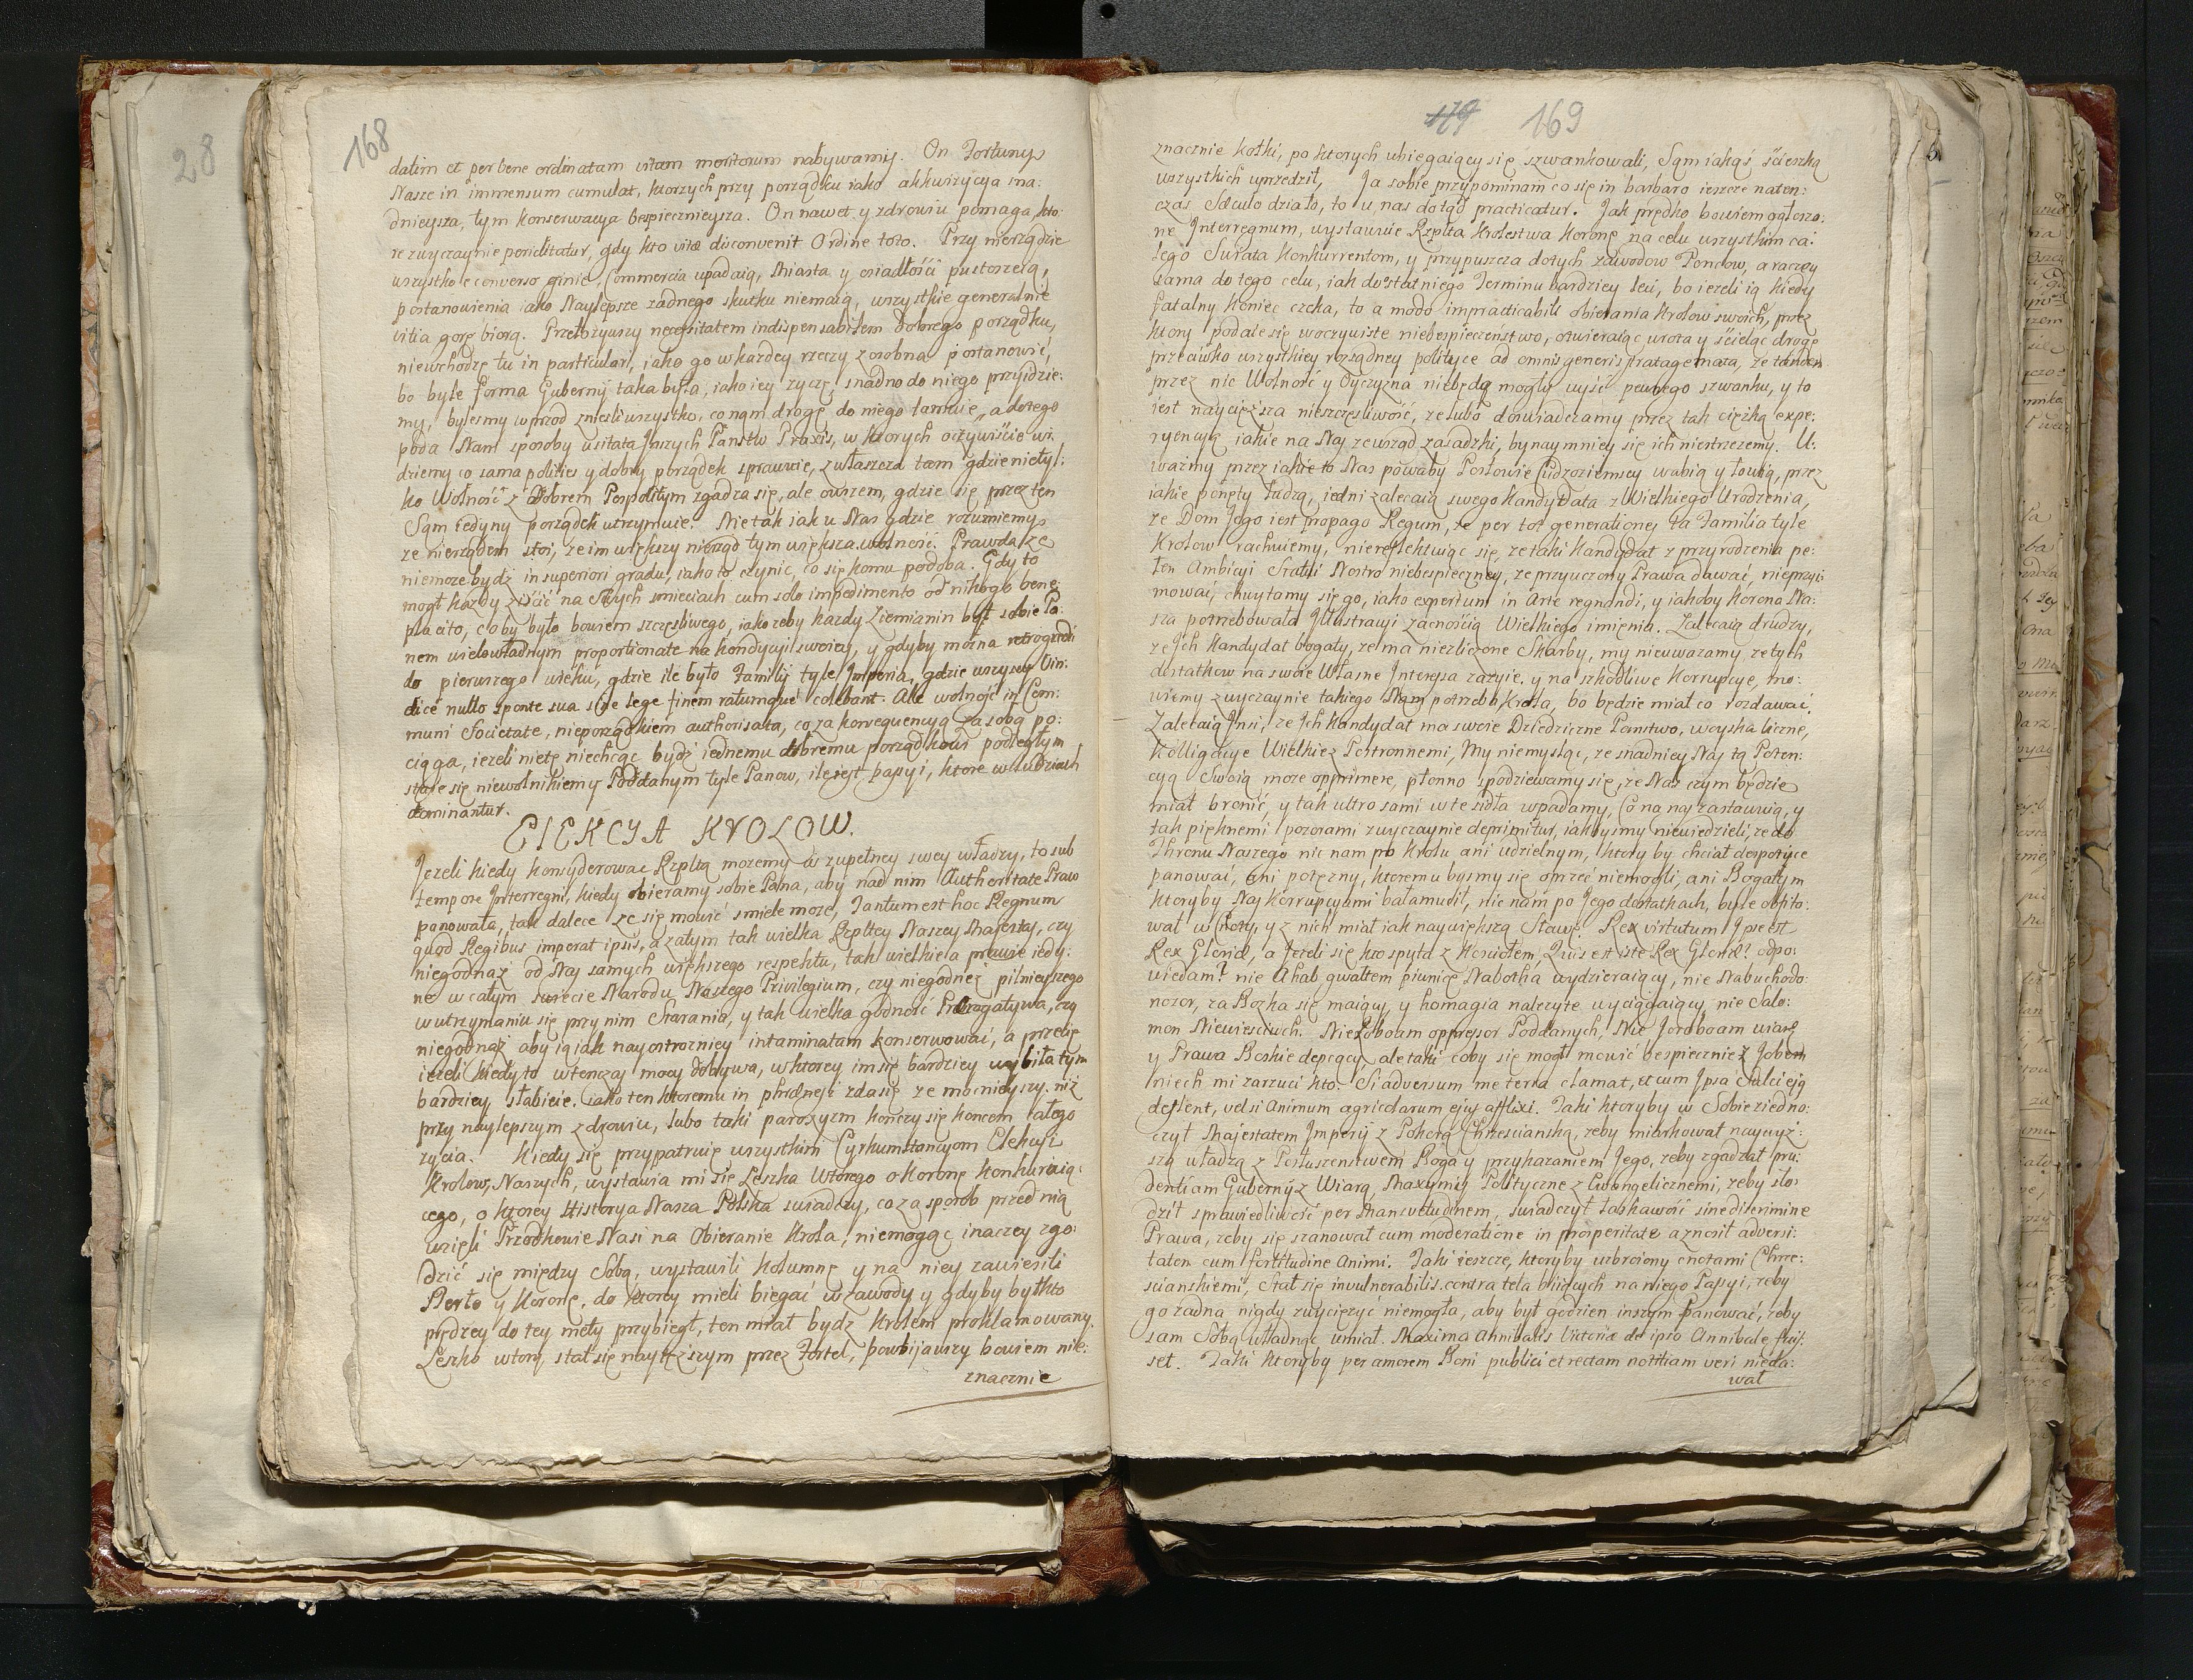 168
datim et per bene ordinatam vitam meritorum nabywamy. On Fortuny
Nasze in immensum cumulat, ktorych przy porządku iako akkwizycya sna:
dnieysza, tym konserwacya bespiecznieysza. On nawet y zdrowiu pomaga, kto
re zwyczaynie periclitatur, gdy kto vitæ disconvenit Ordine toto. Przy nierządzie
wszystko e converso ginie, Commercia upadaią, Miasta y osiadłości pustoszeią,
postanowienia iako Naylepsze zadnego skutku niemaią, wszystkie generalnie
vitia gorę biorą. Przełożywszy necessitatem indispensabilem dobrego porządku,
niewchodzę tu in particulari, iako go w kazdey rzeczy z osobna postanowić,
bo byle forma Gubernij taka była, iako iey zyczę, snadno do niego przyidzie:
my, bylesmy wprzod znieśli wszystko, co nam drogę do niego tamuie, a do tego
poda Nam sposoby usitata Inszych Państw Praxis, w ktorych oczywiście wi:
dziemy co sama polities y dobry porządek sprawuie, zwłaszcza tam gdzie nietyl:
ko Wolność z Dobrem Pospolitym zgadza się, ale owszem, gdzie się przez ten
Sam iedyny porządek utrzymuie. Nie tak iak u Nas gdzie rozumiemy
ze nierządem stoi, ze im większy nierząd tym większa wolność. Prawda ze
niemoze bydź in superiori gradu, iako to czynic, co się komu podoba. Gdy to
mogł kazdy ziścić na Swych smieciach cum solo impedimento od nikogo bene
placito, coby było bowiem szczęśliwego, iako zeby kazdy Ziemianin był sobie Pa:
nem wielowładnym proportionate na kondycyi swoiey, y gdyby mozna retrogradi
do pierwszego wieku, gdzie ile było Familij tyle Imperia, gdzie wszyscy Vin:
dice nullo sponte sua sine lege finem ratumque colebant. Ale wolność in Com:
muni Societate, nieporządkiem authorisata, co za konsequencyą za sobą po:
ciąga, iezeli nie tę niechcąc bydź iednemu dobremu porządkowi podległym
staie się niewolnikiem y Poddanym tyle Panow, ile jest passyi, ktore w ludziach
dominantur.
ELEKCYA KROLOW.
Jezeli kiedy konsyderowac Rzpltą mozemy w zupełney swey władzy, to sub
tempore Interregni, kiedy obieramy sobie Pana, aby nad nim Authoritate Praw
panowała, tak dalece ze się mowić smiele moze, Tantum est hoc Regnum
quod Regibus imperat ipsis, a zatym tak wielka Rzpltey Naszey Majestas, czy
niegodnaż od Nas samych większego respektu, tak wielkie a prawie iedy:
ne w całym swiecie Narodu Naszego Privilegium, czy niegodneż pilnieyszego
w utrzymaniu się przy nim Starania, y tak wielka godność Prerogatywa, czy
niegodnaż aby ią iak nayostrozniey intaminatam konserwować, a przecię
iezeli kiedy to wtenczas mocy dobywa, w ktorey im się bardziey wybiła tym
bardziey słabieie. iako ten ktoremu in phrenesi zda się ze mocnieyszy niż
przy naylepszym zdrowiu, lubo taki paroxyzm kończy się końcem całego
zycia. Kiedy się przypatruię wszystkim Cyrkumstancyom Elekcyi
Krolow, Naszych, wystawia mi się Leszka Wtorego o Koronę Konkuruią:
cego, o ktorey Historya Nasza Polska swiadczy, co za sposob przed nią
wzięli Przodkowie Nasi na Obieranie Krola, niemogąc inaczey zgo:
dzić się między Sobą, wystawili kolumnę y na niey zawiesili
Berło y Koronę, do ktorey mieli biegać w zawody y gdyby był kto
prędzey do tey mety przybiegł, ten miał bydź Krolem proklamowany.
Leszko wtory, stał się nayrzszym przez Fortel, powbijawszy bowiem nie:
znacznie
179 169
znacznie kołki, po ktorych ubiegaiący się szwankowali, Sam iakąś ścieszką
wszystkich uprzedził, Ja sobie przypominam co się in barbaro ieszcze naten:
czas Sæculo działo, to u nas dotąd practicatur. Jak prędko bowiem ogłoszo:
ne Interregnum, wystawuie Rzplta Krolestwa Koronę na celu wszystkim ca:
łego Swiata Konkurrentom, y przypuszcza do tych zawodow Pendow, a raczey
sama do tego celu, iak do statniego Terminu bardziey leci, bo iezeli ią kiedy
fatalny koniec czeka, to a modo impracticabili obierania Krolow swoich, przez
ktory podaie się w oczywiste niebespieczeństwo, otwieraiąc wrota y ścieląc drogę
przeciwko wszystkiey rozsądney polityce ad omnis generis stratagemata, ze tandem
przez nie Wolność y Oyczyzna niebędą mogły uyść pewnego szwanku, y to
iest naycięższa nieszczęśliwość, ze lubo doswiadczamy przez tak ciężką expe:
ryencyą iakie na Nas zewsząd zasadzki, by naymniey się ich niestrzezemy. U:
wazmy przez iakie to Nas powaby Posłowie Cudzoziemscy wabią y łowią, przez
iakie ponęty łudzą, iedni zalecaią swego Kandydata z Wielkiego Urodzenia,
ze Dom Jego iest propago Regum, ze per tot generationes ta Familia tyle
Krolow rachuiemy, niereflektuiąc się, ze taki Kandydat z przyrodzenia pe:
łen Ambicyi Statui Nostro niebespieczney, ze przyuczony Prawa dawać, nie przyi:
mować, chwytamy się go, iako expertum in Arte regnandi, y iakoby Korona Na:
sza potrzebowała Illustracyi zacnością Wielkiego imienia. Zalecaią drudzy,
ze Ich Kandydat bogaty, ze ma niezliczone Skarby, my nieuwazamy, ze tych
dostatkow na swoie Własne Interessa zazyie, y na szkodliwe Korrupcye, mo:
wiemy zwyczaynie takiego Nam potrzeba Krola, bo będzie miał co rozdawać.
Zalecaią Insi, ze Ich Kandydat ma swoie Dziedziczne Panstwo, woyska liczne,
Kolligacye Wielkie z Postronnemi, My niemysląc, ze snadniey Nas tą Poten:
cyą Swoią moze opprimere, płonno spodziewamy się, ze Nas czym będzie
miał bronić, y tak ultro sami w te sidła wpadamy, Co na nas zastawią, y
tak pięknemi pozorami zwyczaynie deprimitur, iakbysmy niewiedzieli, ze do
Thronu Naszego nic nam po Krolu ani udzielnym, ktory by chciał despotyce
panować, ani potęzny, ktoremu bysmy się oprzeć niemogli, ani Bogatym
ktoryby Nas korrupcyami bałamucił, nic nam po Jego dostatkach, byle obfito:
wał w Cnoty, y z nich miał iak naywiększą Sławę. Rex virtutum Ipse est
Rex Gloriæ, a Jezeli się kto spyta z Kosciołem, Quis est iste Rex Gloriæ? odpo:
wiedam? nie Ahab gwałtem piwnicę Nabotha wydzieraiący, nie Nabuchodo:
nozor, za Bozka się maiący, y homagia nalezyte wyciągaiący, nie Salo:
mon Niewiesciuch. Nie Roboam oppresor Poddanych, Nie Jeroboam wiarę
y Prawa Boskie depcący, ale taki coby się mogł mowić bespiecznie z Jobem
niech mi zarzuci kto: Si adversum me terra clamat, et cum Ipsa Sulci ejus
deflent, vel si Animum agricolarum ejus afflixi. Taki ktoryby w Sobie ziedno:
czył Majestatem Imperij z Pokorą Chrzescianską, zeby miarkował naywyż:
szą władzą z Posłuszenstwem Boga y przykazaniem Jego, zeby zgadzał pru:
dentiam Gubernij z Wiarą, Maxymy Polityczne z Ewangelicznemi, zeby sło:
dził sprawiedliwość per Mansvetudinem, swiadczył łaskawość sine discrimine
Prawa, zeby się szanował cum moderatione in prosperitate a znosił adversi:
tatem cum fortitudine Animi. Taki ieszcze, ktoryby uzbroiony cnotami Chrze:
scianskiemi, Stał się invulnerabilis contra tela biiących na niego Passyi, zeby
go zadna nigdy zwycięzyć niemogła, aby był godzien inszym panować, zeby
sam Sobą władnąc umiał. Maxima Annibalis Victoria de ipso Annibale fuis:
set. Taki ktoryby per amorem Boni publici et rectam notitiam veri nieda:
wał
28